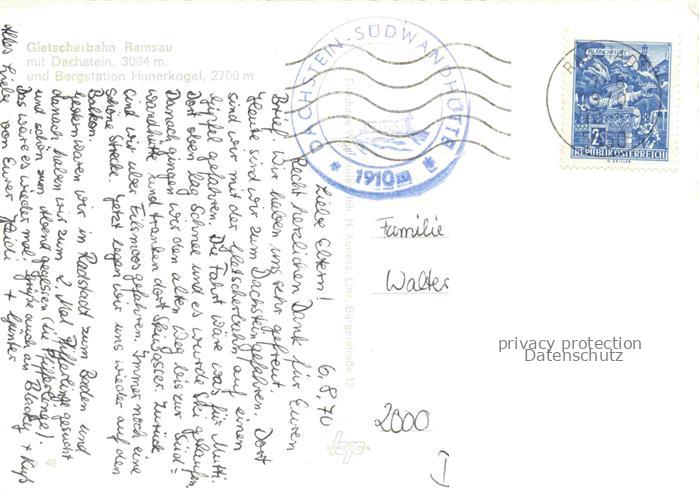 Gletscherbahn Ramsau
mit Dachstein, 3004 m,
und Bergstation Hunerkogel, 2700 m
DACHSTEIN-SÜDWANDHÜTTE
1910m
2.50
REPUBLIK ÖSTERREICH
6.8.70
Liebe Eltern!
Recht herzlichen Dank für Euren
Brief. Wir haben uns sehr gefreut.
Heute sind wir zum Dachstein gefahren. Dort
sind wir mit der Gletscherbahn auf einen
Gipfel gefahren. Die Fahrt wäre was für Mutti.
Dort oben lag Schnee und es wurde Ski gelaufen.
Danach gingen wir den alten Weg bis zur Süd=
wandhütte und tranken dort Skiwasser. Zurück
sind wir über Filzmoos gefahren. Immer noch eine
schöne Strecke. Jetzt liegen wir uns wieder auf den
Balkon.
Gestern waren wir in Radstadt zum Baden und
danach haben wir zum 2. Mal Pfifferlinge gesucht
und schön zum Abend gegessen (die Pfifferlinge).
Das wäre es wieder mal. Grüße auch an Blacky + Kuß
Alles Liebe von Eurer Heidi + Günter
Familie
Walter
2000
privacy protection
Datenschutz
46